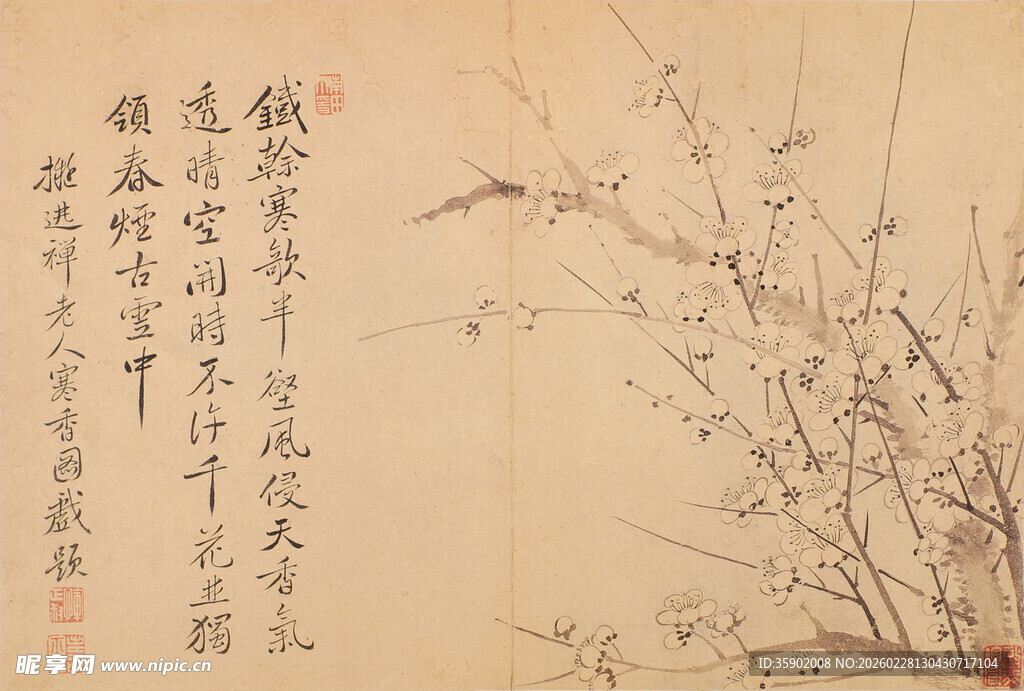 鐵幹寒欹半壁風侵天香氣
透晴空開時不許千花並獨
領春煙古雪中
擬逃禅老人寒香圖戲題
昵享网 www.nipic.cn
ID:35902008 NO:20260228130430717104